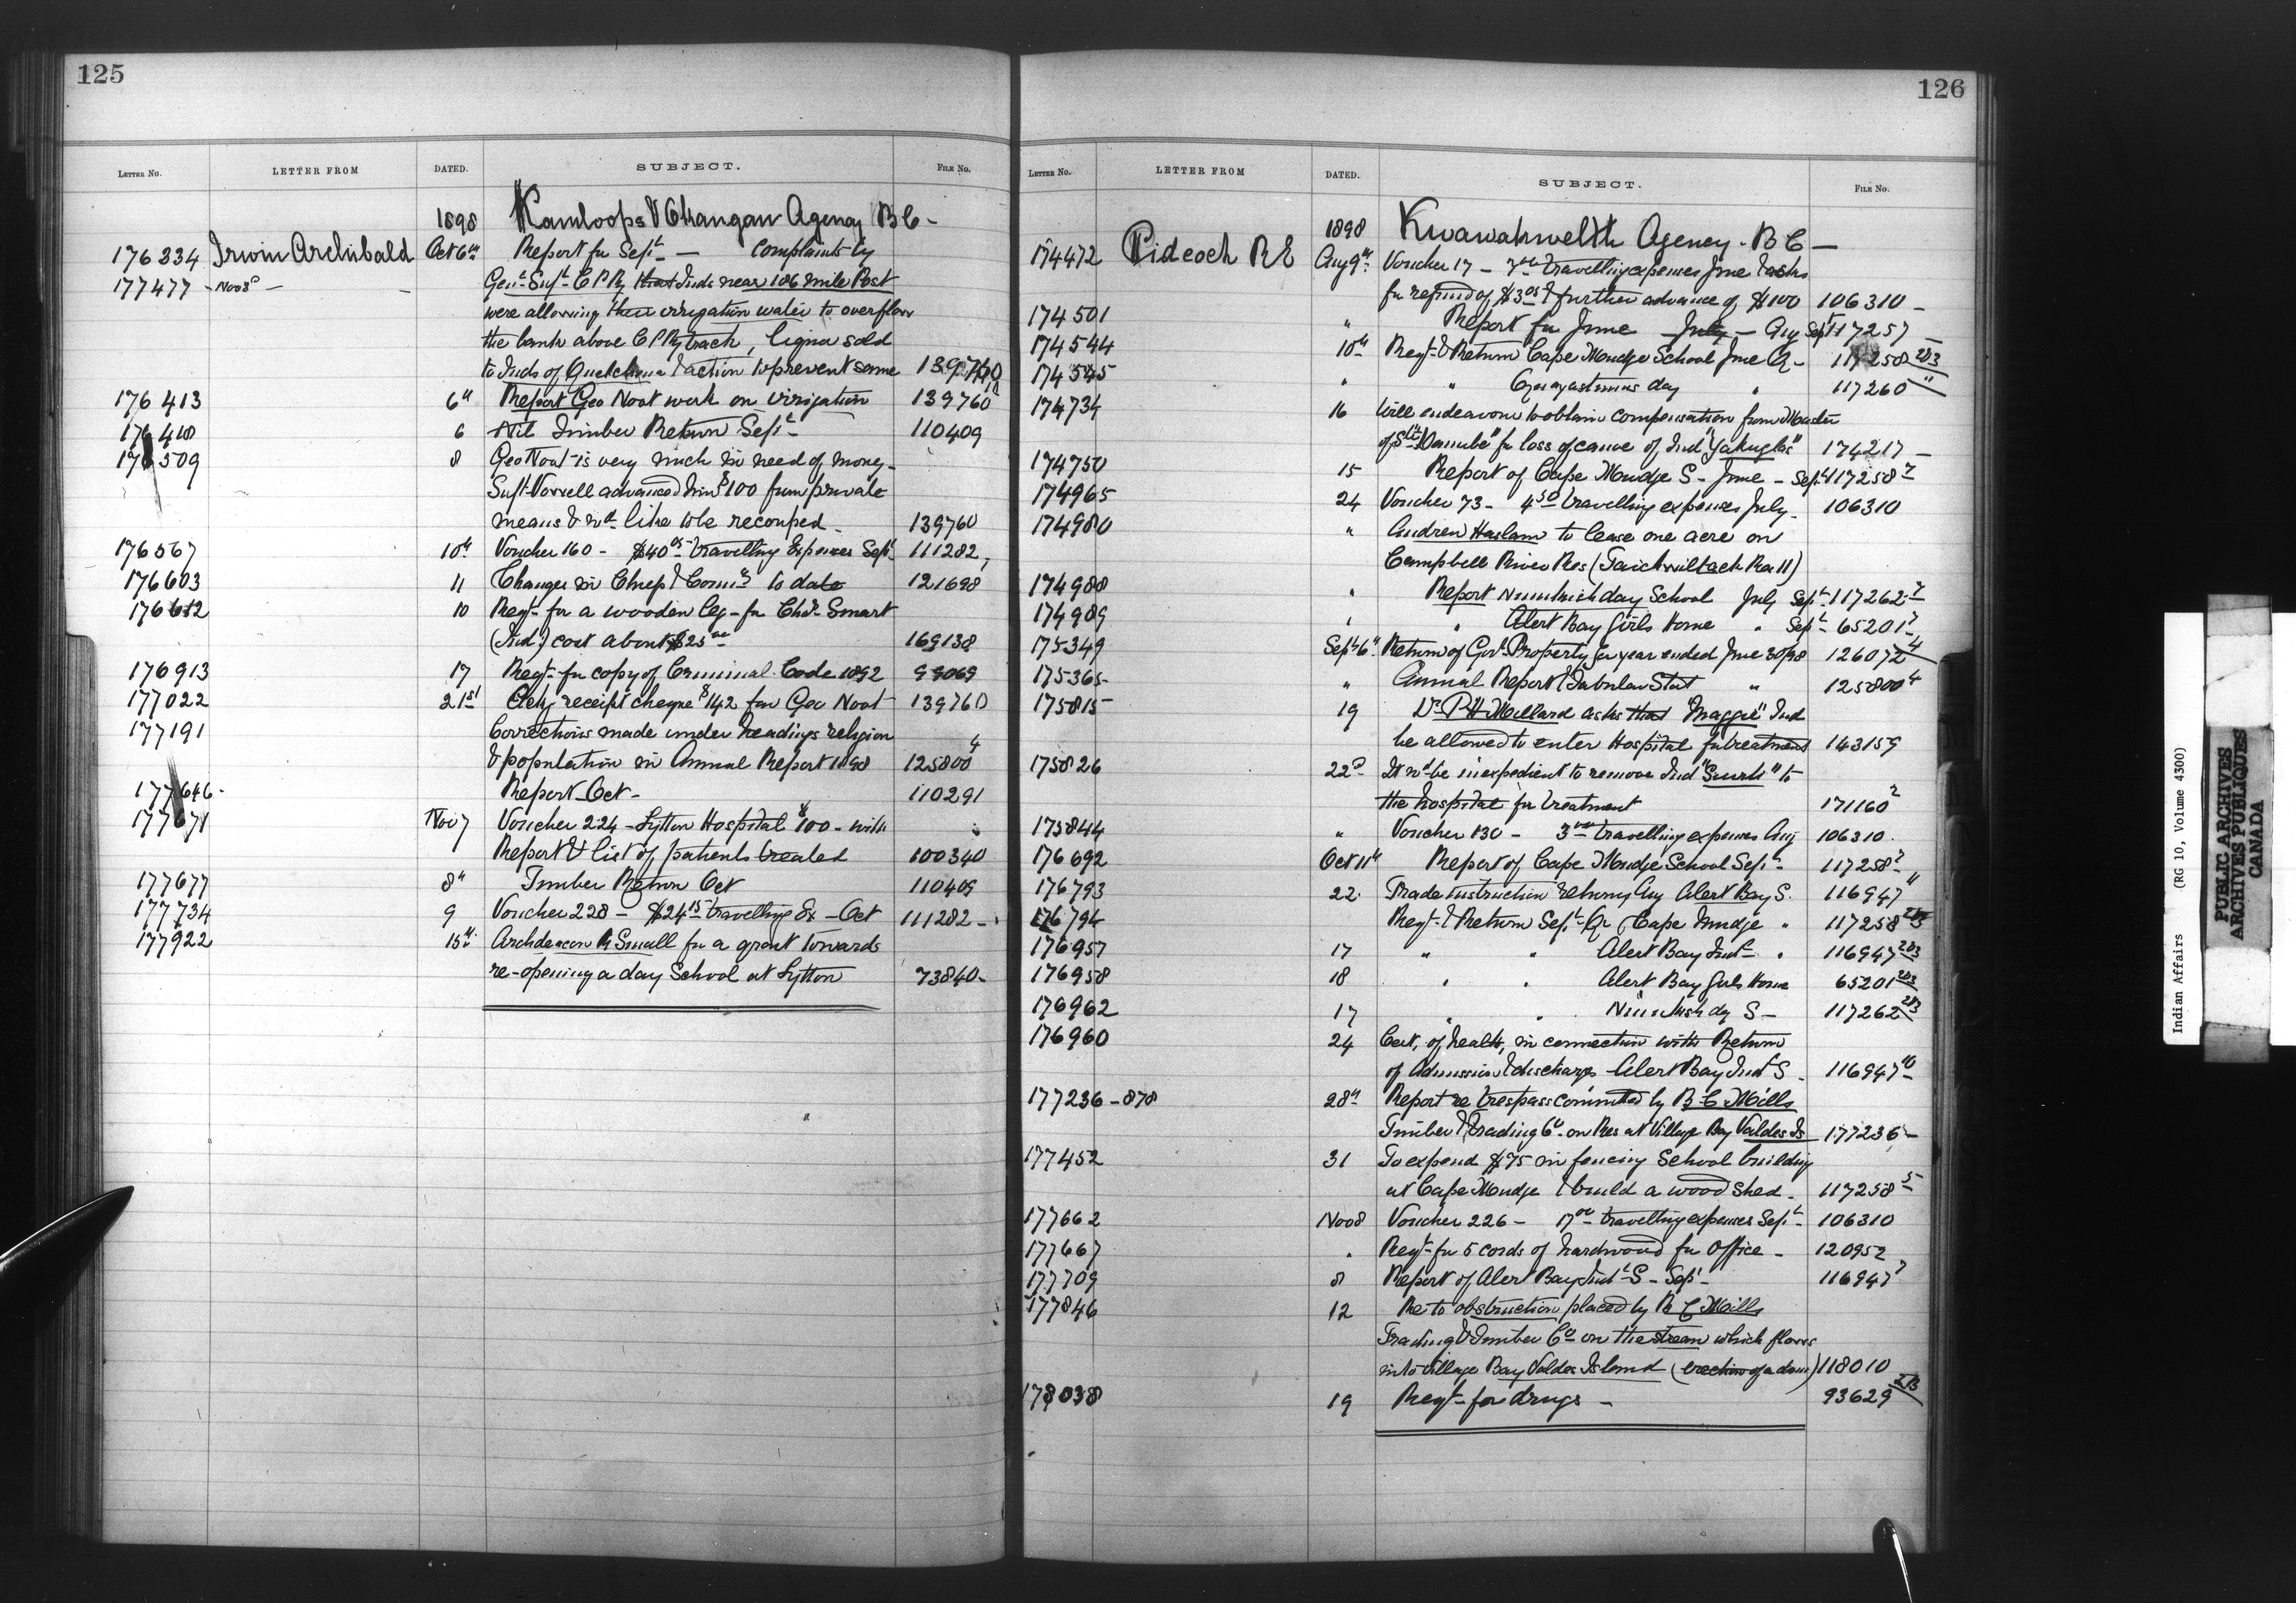 125
LETTER NO. LETTER FROM DATED. SUBJECT. FILE NO.
1898 Kamloops & Okangan Agency B C -
176234 Irwin Archibald Oct 6th Report for Sept - complaints by
177477 - Nov 3d - Genl Supt C P Ry that Inds near 186 mile Post
were allowing their irrigation water to overflow
the bank above C P Ry track, liquor sold
to Inds of & action to prevent same 139760
176413 6th Report Geo Noot work on irrigation 139760
176418 6 Nil Timber Return Sept 110409
176509 8 Geo Noot is very much in need of money -
Supt Vowell advanced him $100 from private
means & wd like to be recouped - 139760
176567 10th Voucher 160 - $40 05 travelling Expenses Sept 111282
176603 11 Changes in Chiefs & Counrs to date 121698
176612 10 Reqt for a wooden leg - for Chs Smart
(Ind) cost about $25 00 169138
176913 17 Reqt for copy of Criminal Code 1892 99069
177022 21st Ackg receipt cheque $142 for Geo Noot 139760
177191 Corrections made under headings religion
& population in Annual Report 1898 125800 4
177646 - Report Oct - 110291
177671 Nov 7 Voucher 224 - Lytton Hospital $100 - with
Report & list of patients treated 100340
177677 8th Timber Return Oct 110409
177734 9 Voucher 228 - $24 15 travelling Ex - Oct 111282 -
177922 15th Archdeacon R Small for a grant towards
re-opening a day School at Lytton 73840 -
126
LETTER NO. LETTER FROM DATED. SUBJECT. FILE NO.
1898 Kwawakwelth Agency - B C -
174472 Pidcock R E Aug 9th Voucher 17 - travelling expenses June & asks
for refund of $3 05 & further advance of $100 106310 -
174501 " Report for June July - Aug Sept 117257 -
174544 10th Reqt & Return Cape Mudge School June Q - 117258 2&3
174545 " " Gwayastums day " 117260 "
174734 16 Will endeavour to obtain compensation from Master
of Str "Danube" for loss of canoe of Ind "Yakuglas" 174217 -
174750 15 Report of Cape Mudge S - June - Sept 117258 2
174965 24 Voucher 73 - 4 50 travelling expenses July - 106310
174980 " Andrew Haslam to lease one acre on
Campbell River Res (Taichwiltach Res 11)
174988 " Report Nimkish day School July Sept 117262 2
174989 " " Alert Bay Girls Home " Sept - 65201 2
175349 Sept 6th Return of Govt Property for year ended June 30/98 126072 4
175365 " Annual Report & Tabular Stat " 125800 4
175815 19 Dr P H Millard asks that "Maggie" Ind
be allowed to enter Hospital for treatment 143159
175826 22d It wd be inexpedient to remove Ind to
the hospital for treatment 171160 2
175844 " Voucher 130 - 3 00 travelling expenses Aug 106310
176692 Oct 11th Report of Cape Mudge School Sept - 117258 2
176793 22 Trade instruction returns Aug Alert Bay S. 116947 11
176794 Reqt & Return Sept Qr Cape Mudge " 117258 2&3
176957 17 " " Alert Bay Indl " 116947 2&3
176958 18 " " Alert Bay Girls Home 65201 2&3
176962 17 " " Nimkish day S - 117262 2&3
176960 24 Cert. of health, in connection with Return
of Admission & discharge Alert Bay Indl S - 116947 10
177236 - 878 28th Report re trespass committed by B C Mills
Timber & trading Co - on Res at Village Bay Valdes Is 177236 -
177452 31 To expend $75 in fencing School building
at Cape Mudge & build a wood shed - 117258 5
177662 Nov 8 Voucher 226 - 17 00 travelling expenses Sept 106310
177667 " Reqt for 5 cords of hardwood for Office - 120952
177709 8 Report of Alert Bay Indl S - Sept - 116947 2
177846 12 Re to obstruction placed by B C Mills
Trading & Timber Co on the stream which flows
into Village Bay Valdes Island (erection of a dam) 118010
178038 19 Reqt for drugs - 93629 2&3
Indian Affairs (RG 10, Volume 4300)
PUBLIC ARCHIVES
ARCHIVES PUBLIQUES
CANADA